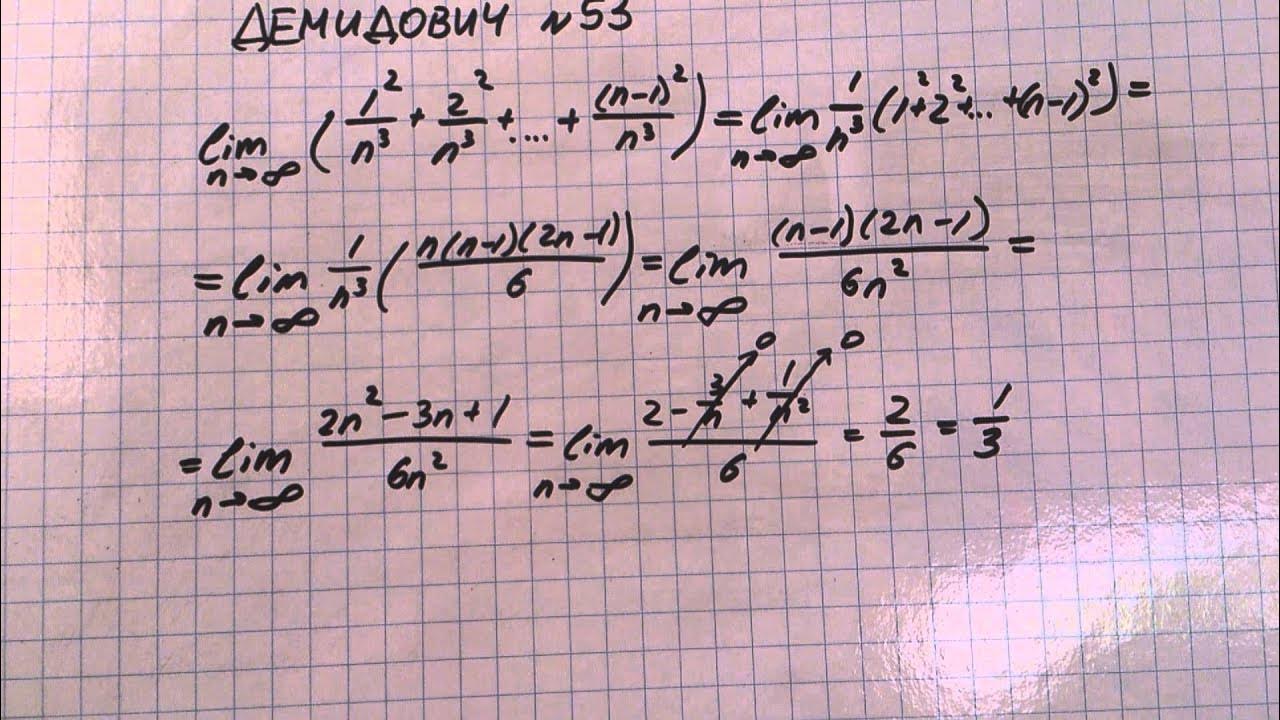 ДЕМИДОВИЧ №53
lim n→∞ (1²/n³ + 2²/n³ + .... + (n-1)²/n³) = lim n→∞ 1/n³ (1²+2²+...+(n-1)²) =
= lim n→∞ 1/n³ (n(n-1)(2n-1)/6) = lim n→∞ (n-1)(2n-1)/6n² =
= lim n→∞ (2n²-3n+1)/6n² = lim n→∞ (2 - 3/n→0 + 1/n²→0)/6 = 2/6 = 1/3